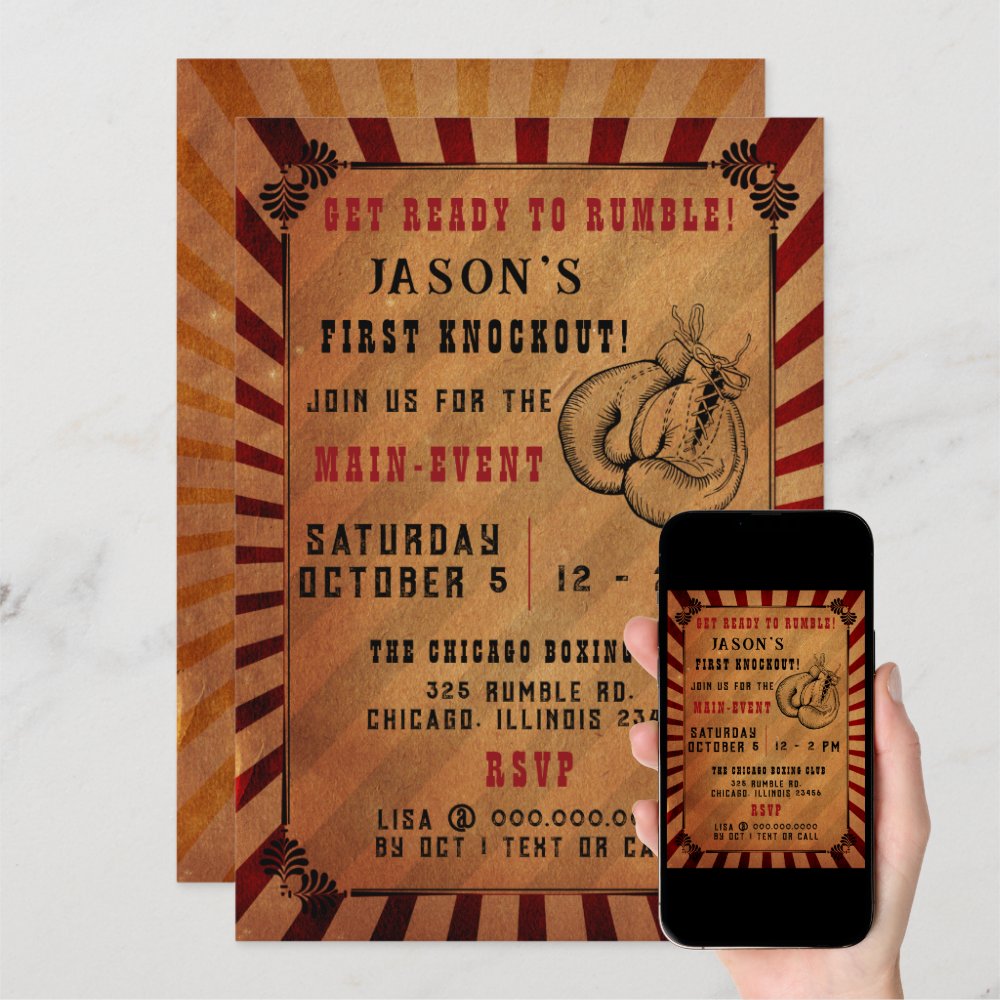 GET READY TO RUMBLE!
JASON'S
FIRST KNOCKOUT!
JOIN US FOR THE
MAIN-EVENT
SATURDAY
OCTOBER 5
12 - 2
THE CHICAGO BOXING
325 RUMBLE RD.
CHICAGO, ILLINOIS 234
RSVP
LISA @ 000.000.0
BY OCT 1 TEXT OR CA
GET READY TO RUMBLE!
JASON'S
FIRST KNOCKOUT!
JOIN US FOR THE
MAIN-EVENT
SATURDAY
OCTOBER 5
12 - 2 PM
THE CHICAGO BOXING CLUB
325 RUMBLE RD.
CHICAGO, ILLINOIS 23456
RSVP
LISA @ 000.000.0000
BY OCT 1 TEXT OR CALL